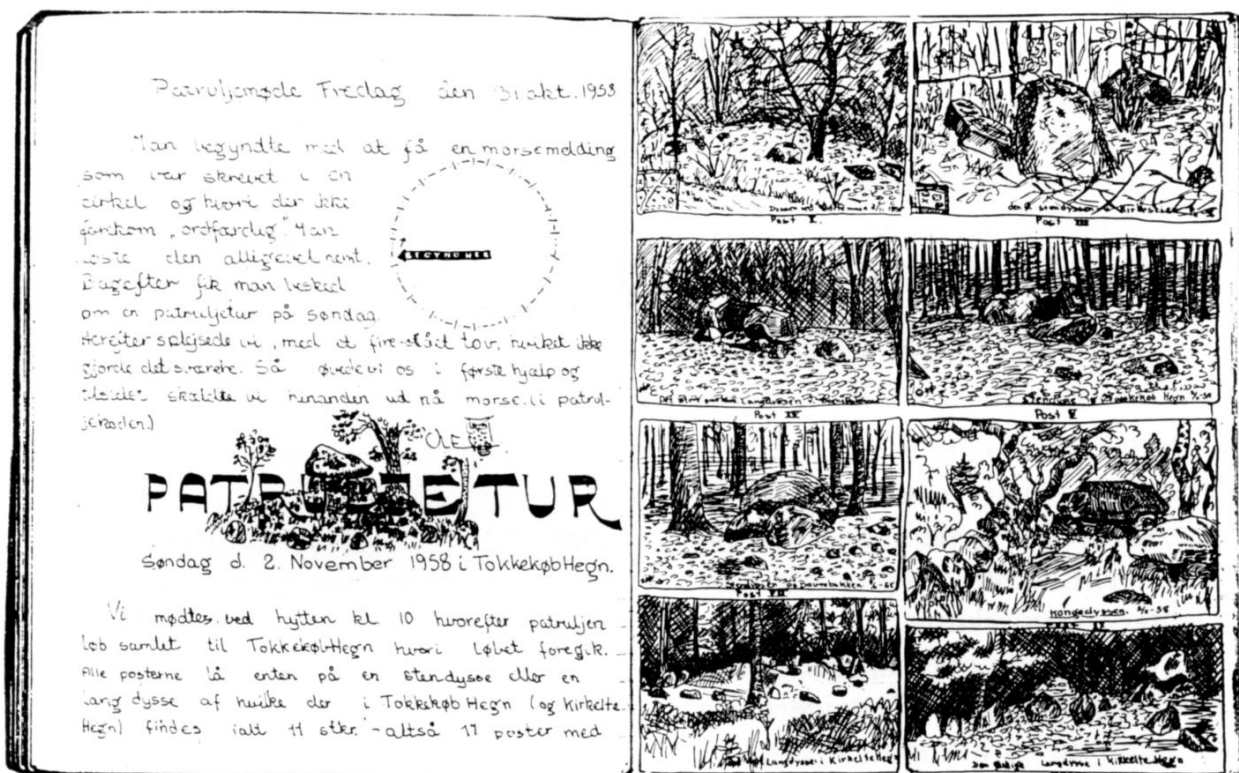 Patruljemøde Fredag den 31 okt. 1958
Man begyndte med at få en morsemelding
som var skrevet i en
cirkel og hvori der ikke
forekom "ordfærdig". Man
løste den alligevel nemt.
BEGYND HER
Bagefter fik man besked
om en patruljetur på søndag.
Herefter splejsede vi, med et fire-slået tov, hvilket ikke
gjorde det sværere. Så øvede vi os i førstehjælp og
skældte vi hinanden ud på morse. (i patrul-
jekoden.)
OLE
PATRULJETUR
Søndag d. 2. November 1958 i TokkekøbHegn.
Vi mødtes ved hytten kl 10 hvorefter patruljen
løb samlet til TokkekøbHegn hvori løbet foregik.
Alle posterne lå enten på en stendysse eller en
langdysse af hvilke der i TokkekøbHegn (og Kirkelte
Hegn) findes ialt 11 stkr. - altså 11 poster med
Post X.
Post VIII
Post XI
Post V
Post VII
Hongedyssen. 2/11-58
Langdysse i Kirkelte Hegn
Langdysse i Kirkelte Hegn